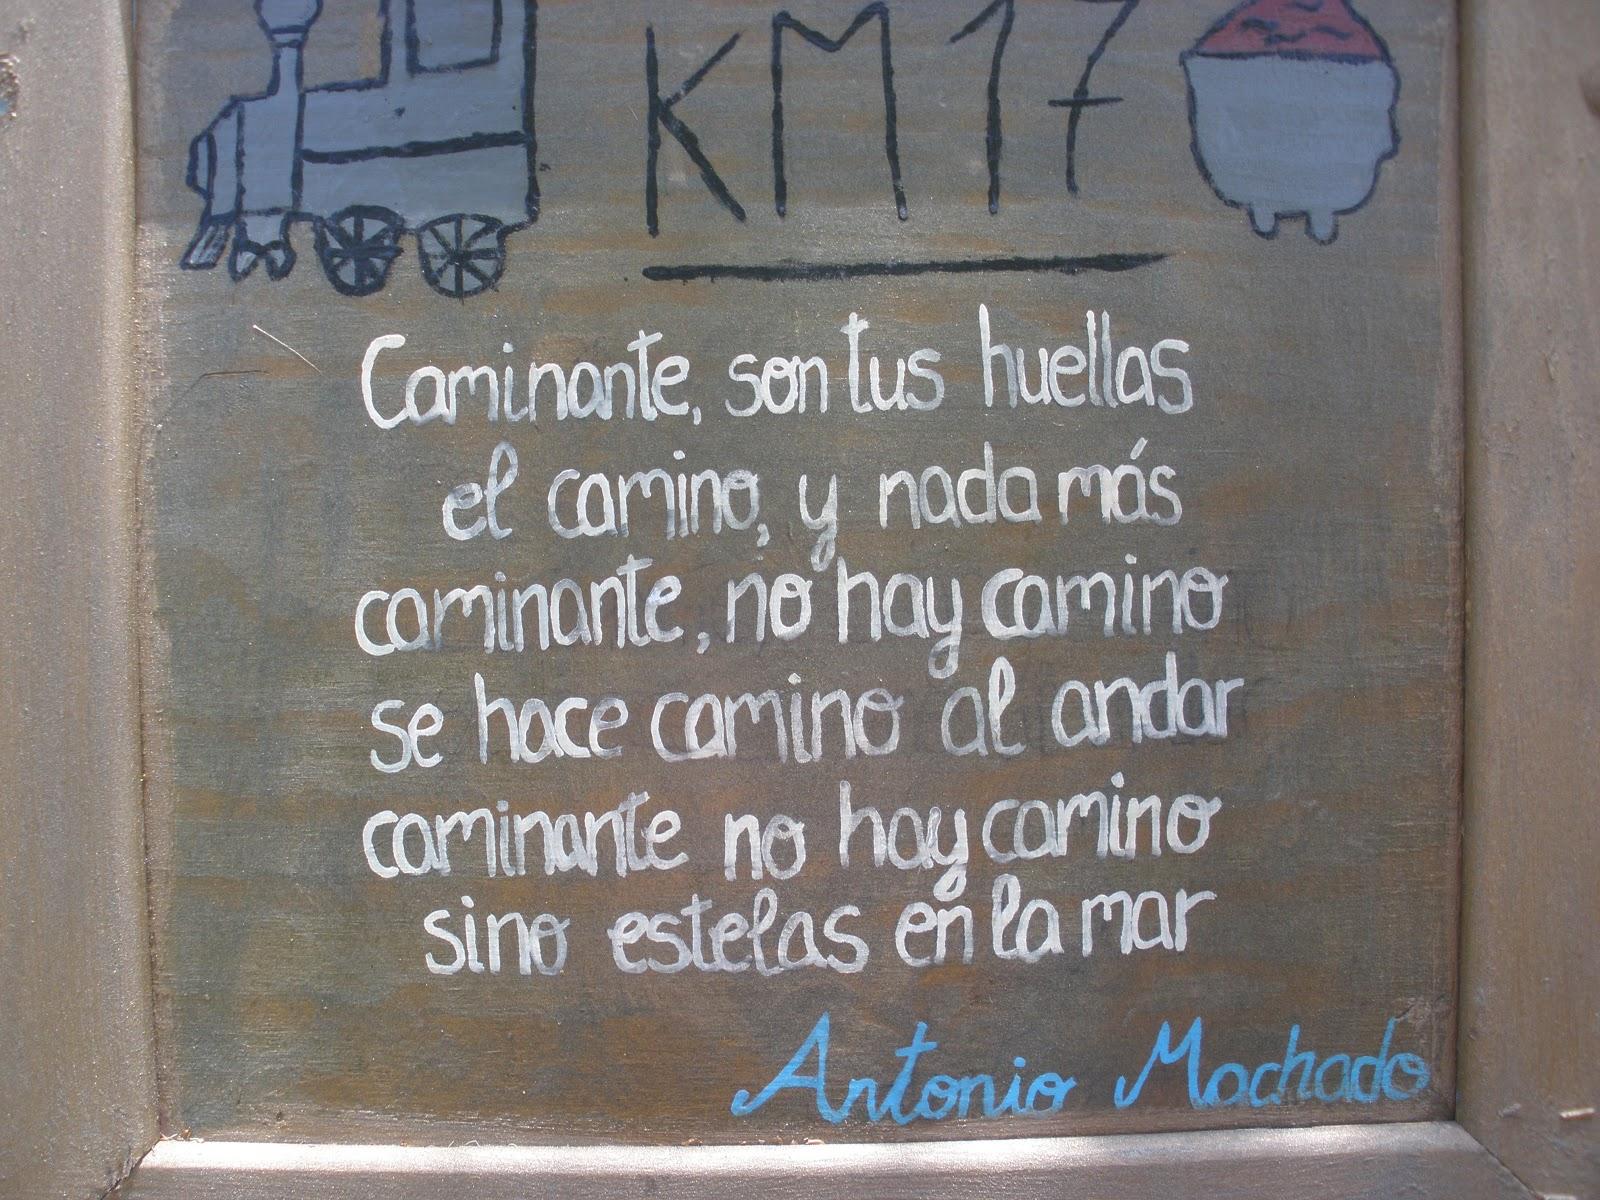 KM 17
Caminante, son tus huellas
el camino, y nada más
caminante, no hay camino
se hace camino al andar
caminante no hay camino
sino estelas en la mar
Antonio Machado